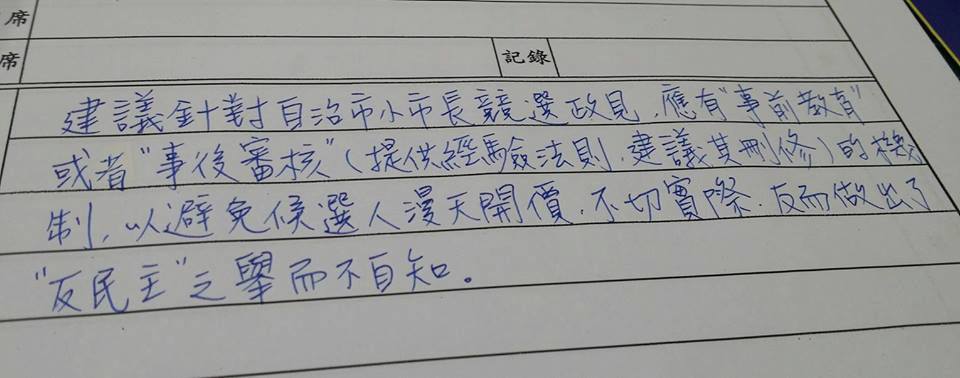 席
席 記錄
建議針對自治市小市長競選政見,應有"事前教育"
或者"事後審核"(提供經驗法則,建議其刪修)的機
制,以避免候選人漫天開價,不切實際,反而做出了
"反民主"之舉而不自知。